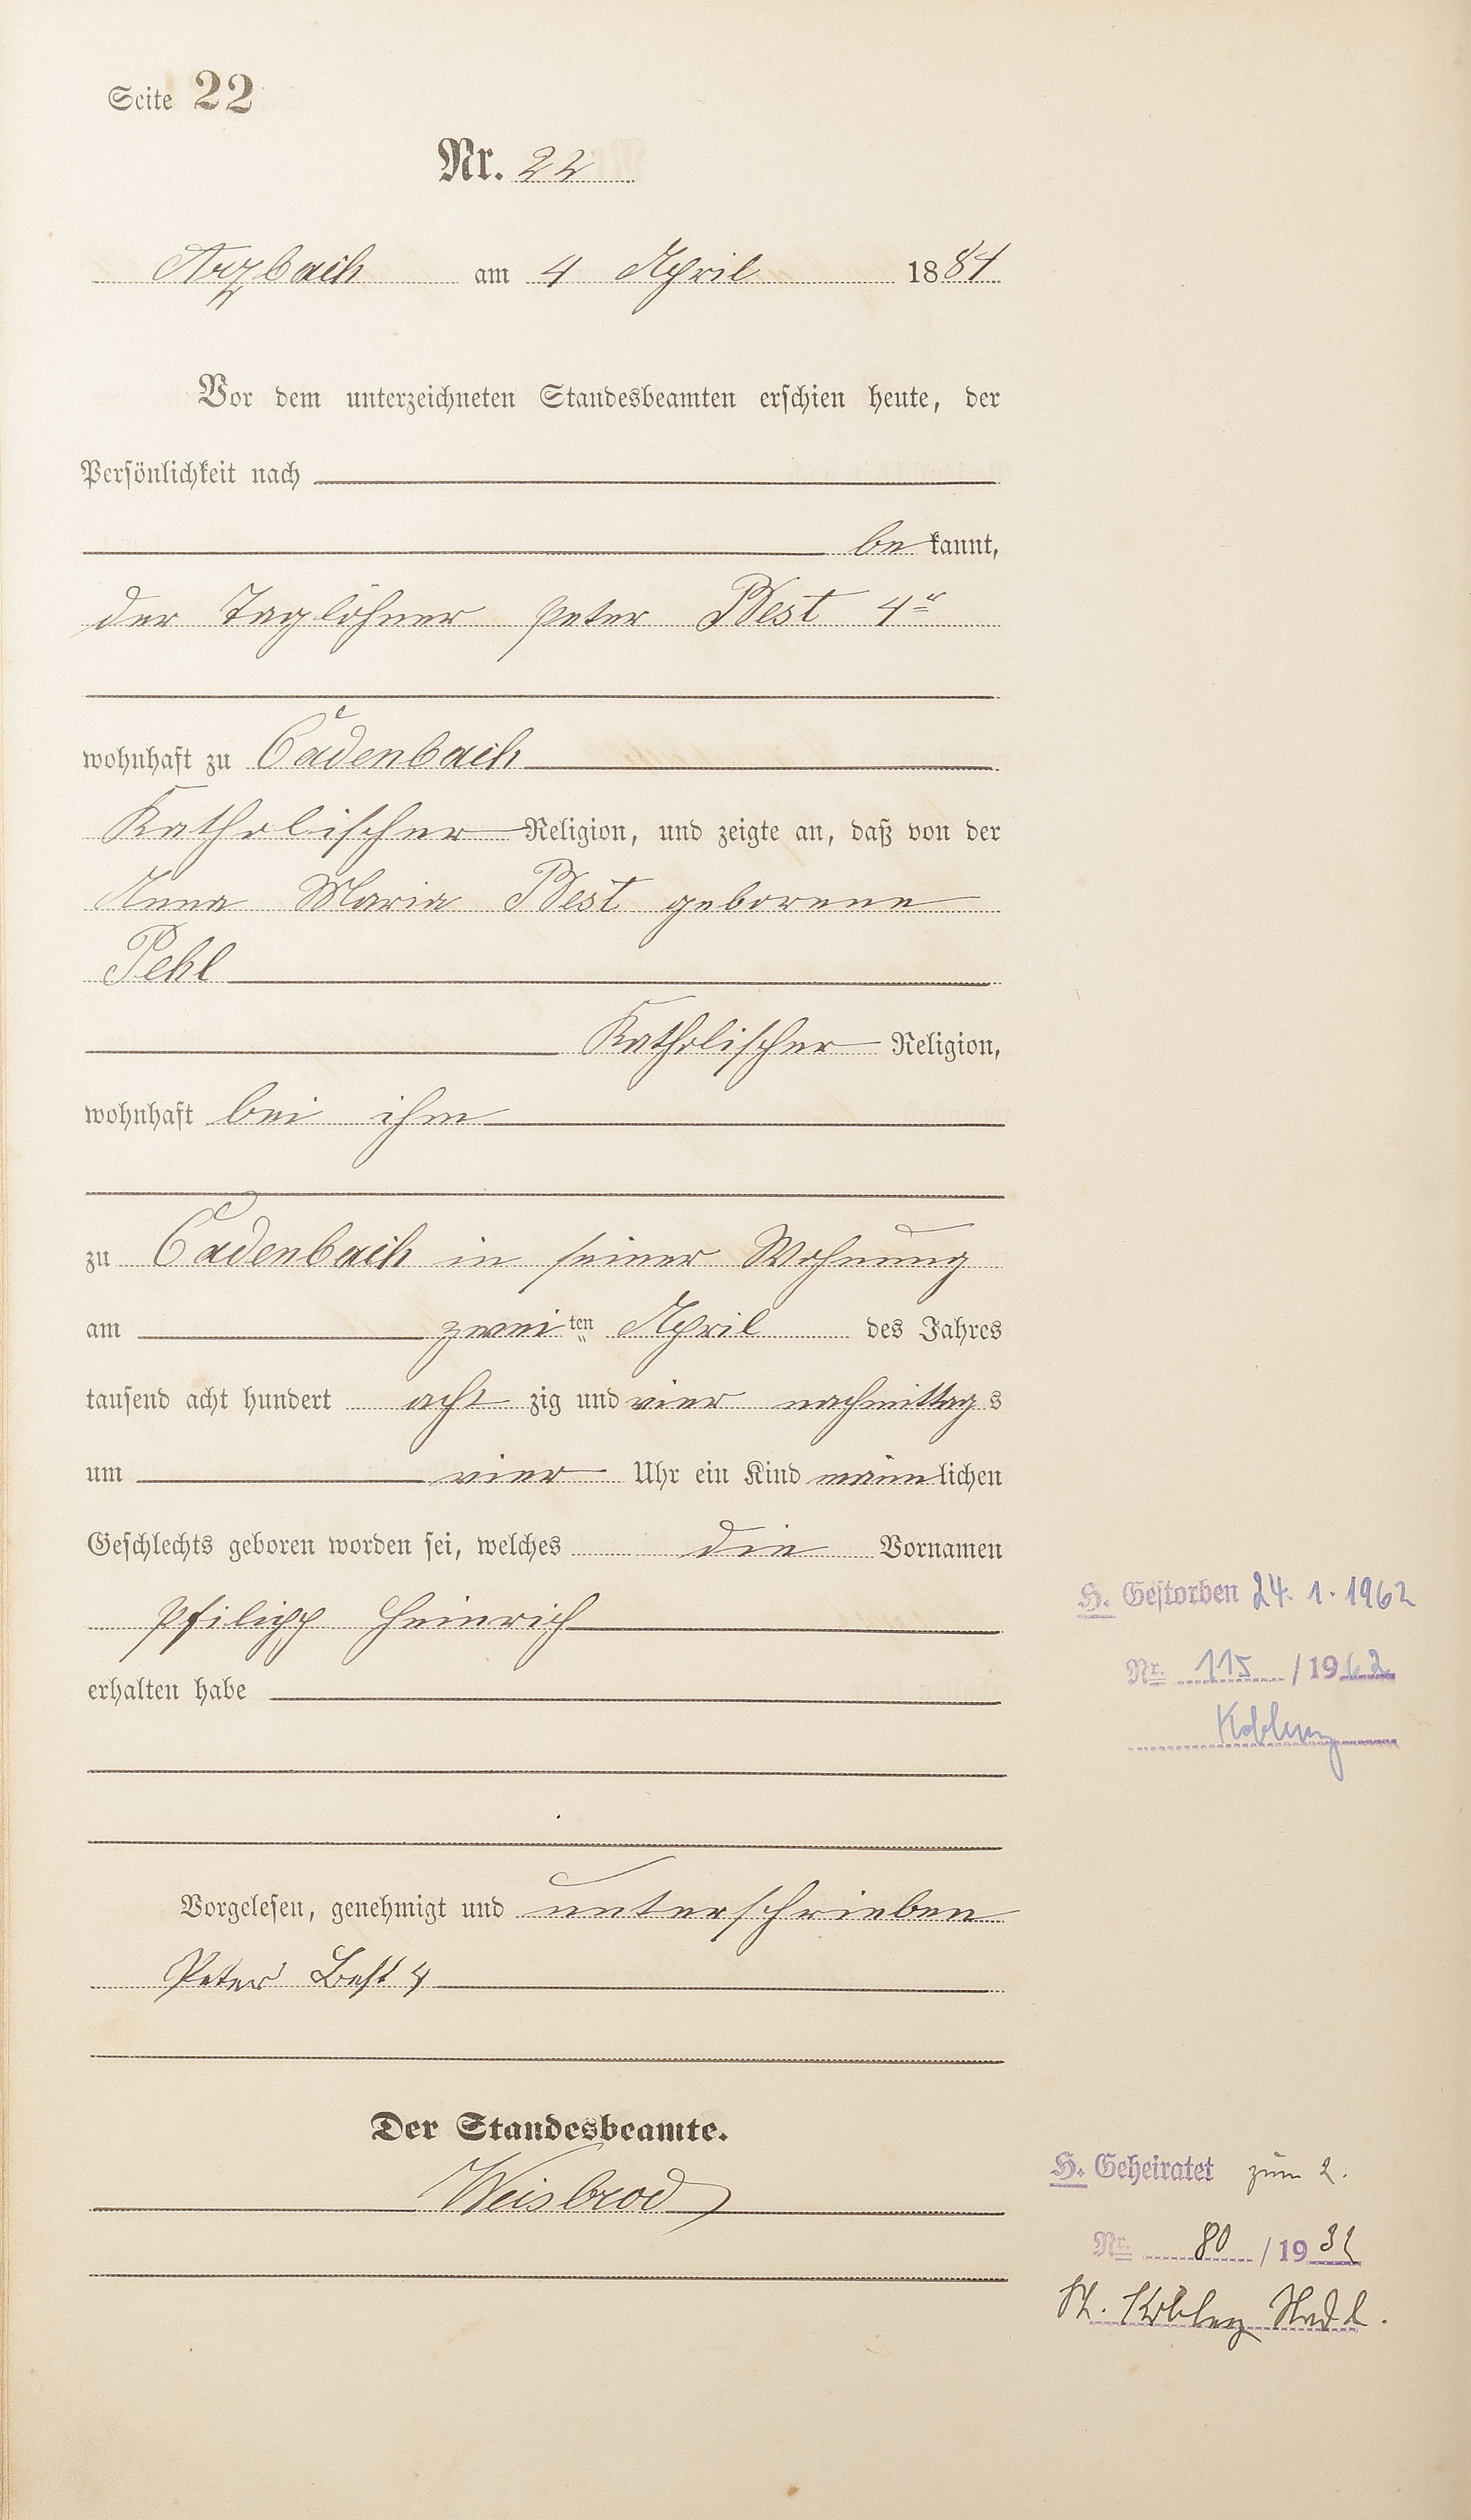 Seite 22
Nr. 22
Arzbach am 4 April 1884
Vor dem unterzeichneten Standesbeamten erschien heute, der
Persönlichkeit nach
be kannt,
der Taglöhner Peter Best 4r
wohnhaft zu Cadenbach
Katholischer Religion, und zeigte an, daß von der
Anna Maria Best geborene
Pehl
Katholischer Religion,
wohnhaft bei ihm
zu Cadenbach in seiner Wohnung
am zwei ten April des Jahres
tausend acht hundert acht zig und vier nachmittag s
um vier Uhr ein Kind männlichen
Geschlechts geboren worden sei, welches die Vornamen
Philipp Heinrich
erhalten habe
Vorgelesen, genehmigt und unterschrieben
Peter Best 4
Der Standesbeamte.
Weisbrod
H. Gestorben 24. 1. 1962
Nr. 115 / 1962
Koblenz
H. Geheiratet zum 2.
Nr. 80 / 19
St. Koblenz